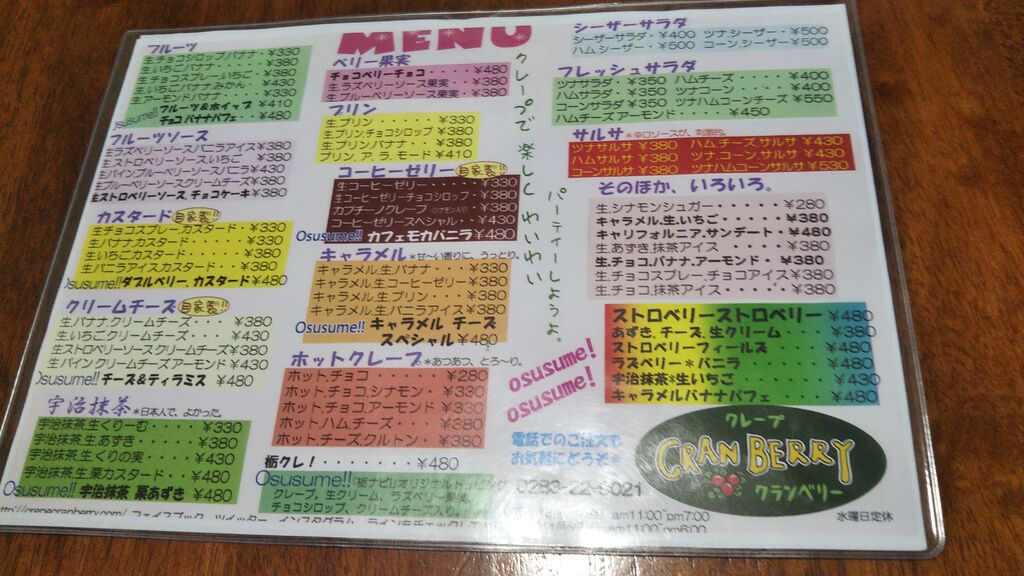 MENU
フルーツ
生チョコシロップバナナ・¥330
生いちごバナナ・・・・¥380
生チョコスプレーいちご・¥380
生いちごバナナみかん・¥430
生アーモンドバナナ・・¥330
フルーツ&ホイップ ¥410
Osusume!! チョコバナナパフェ・¥480
フルーツソース
生ラズベリーソースバニラアイス¥380
生ストロベリーソースいちご ¥380
生パインブルーベリーソースバニラ¥430
生ブルーベリーソースクリームチーズ¥380
生ストロベリーソース,チョコケーキ¥380
カスタード 自家製!!
生チョコスプレーカスタード・¥330
生バナナカスタード・・・¥330
生いちごカスタード・・・¥380
生バニラアイスカスタード・¥380
Osusume!!ダブルベリー,カスタード¥480
クリームチーズ 自家製!!
生バナナ,クリームチーズ・・¥380
生いちごクリームチーズ・・¥430
生ストロベリーソースクリームチーズ¥380
生パイン,クリームチーズアーモンド¥430
Osusume!!チーズ&ティラミス ¥480
宇治抹茶 *日本人で、よかった。
宇治抹茶,生くりーむ・・¥330
宇治抹茶,生あずき・・・¥380
宇治抹茶,生くりの実・・¥430
宇治抹茶,生栗カスタード・¥480
Osusume!! 宇治抹茶 栗あずき・¥480
ベリー果実
チョコベリーチョコ・・・・¥480
生ラズベリーソース果実・・¥380
生ブルーベリーソース果実・¥380
プリン
生プリン・・・・・・¥330
生プリン,チョコシロップ・¥380
生プリン,バナナ・・・¥380
プリン,ア,ラ,モード・¥410
コーヒーゼリー 自家製!!
生コーヒーゼリー・・・・・¥330
生コーヒーゼリーチョコシロップ・¥380
カプチーノクレープ・・¥380
コーヒーゼリースペシャル・・¥430
Osusume!! カフェモカバニラ ¥480
キャラメル *甘〜い香りに、うっとり。
キャラメル,生バナナ・・・¥330
キャラメル,生コーヒーゼリー ¥380
キャラメル,生プリン・・・¥380
キャラメル,生バニラアイス¥380
Osusume!! キャラメル チーズ
スペシャル ¥480
ホットクレープ *あつあつ、とろ〜り。
ホット,チョコ・・・・・¥280
ホット,チョコ,シナモン・¥330
ホット,チョコ,アーモンド ¥330
ホット,ハム,チーズ・・・¥380
ホット,チーズクルトン・・¥380
栃クレ!・・・・・・¥480
Osusume!! (栃ナビ
クレープ。生クリーム、ラズベリー果実、
チョコシロップ、クリームチーズ入り。
クレープで楽しくわいわい
パーティーしようよ。
シーザーサラダ
シーザーサラダ・¥400 ツナ,シーザー・¥500
ハム,シーザー・¥500 コーン,シーザー¥500
フレッシュサラダ
ツナサラダ・¥350 ハムチーズ・・・¥400
ハムサラダ・¥350 ツナコーン・・・¥400
コーンサラダ¥350 ツナハムコーンチーズ¥550
ハムチーズアーモンド・・・¥450
サルサ *辛口ソースが、刺激的。
ツナサルサ ¥380 ハム,チーズ,サルサ ¥430
ハムサルサ ¥380 ツナ,コーン,サルサ ¥430
コーンサルサ¥380 ツナハムコーンサルサ¥530
そのほか、いろいろ。
生シナモンシュガー・・・・¥280
キャラメル,生,いちご・・・・・¥380
キャリフォルニア,サンデート・・¥480
生,あずき,抹茶アイス・・・・¥380
生,チョコ,バナナ,アーモンド・・¥380
生,チョコスプレー,チョコアイス¥380
生,チョコ,抹茶アイス・・・・¥380
ストロベリーストロベリー ¥480
あずき チーズ 生クリーム・・¥380
ストロベリーフィールズ・・¥480
ラズベリー*バニラ・・・¥480
宇治抹茶*生いちご・・・¥430
キャラメルバナナパフェ・¥480
osusume!
osusume!
電話でのご注文も
お気軽にどうぞ*
クレープ
CRAN BERRY
クランベリー
am11:00~pm7:00
am11:00~pm6:00
水曜日定休